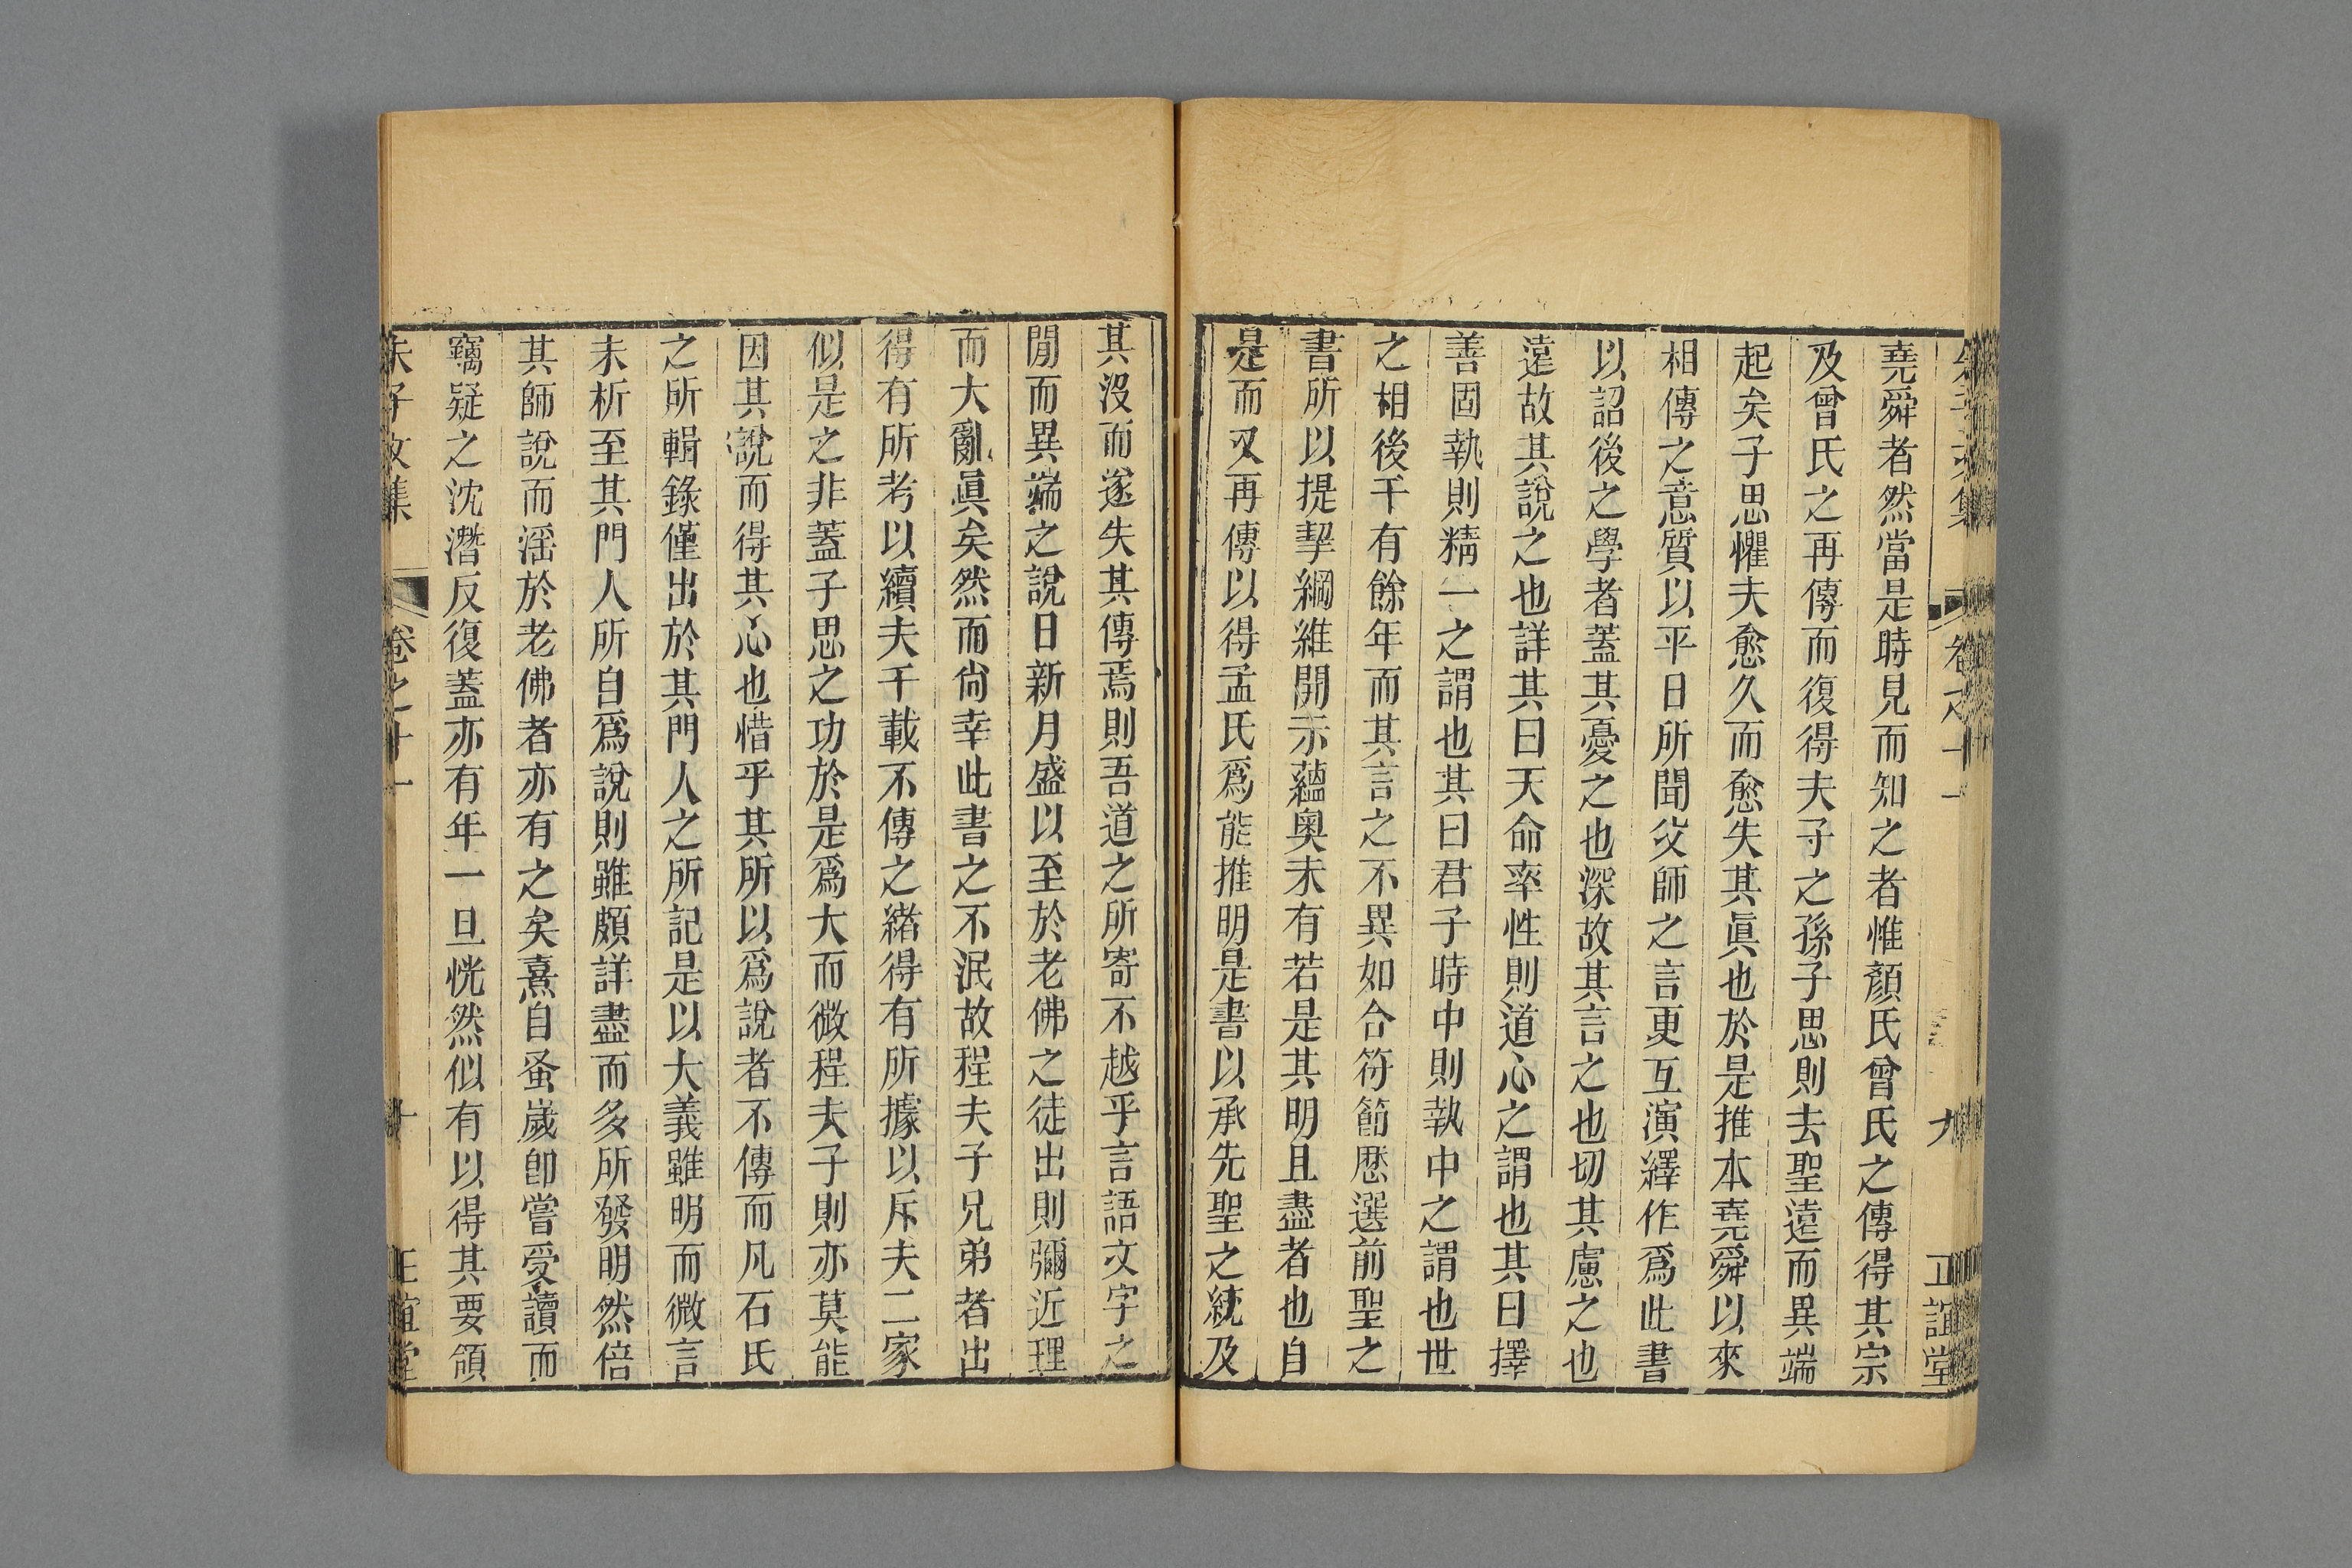 堯舜者然當是時見而知之者惟顏氏曾氏之傳得其宗
及曾氏之再傳而復得夫子之孫子思則去聖遠而異端
起矣子思懼夫愈久而愈失其眞也於是推本堯舜以來
相傳之意質以平日所聞父師之言更互演繹作爲此書
以詔後之學者蓋其憂之也深故其言之也切其慮之也
遠故其說之也詳其曰天命率性則道心之謂也其曰擇
善固執則精一之謂也其曰君子時中則執中之謂也世
之相後千有餘年而其言之不異如合符節厯選前聖之
書所以提挈綱維開示蘊奧未有若是其明且盡者也自
是而又再傳以得孟氏爲能推明是書以承先聖之統及
其沒而遂失其傳焉則吾道之所寄不越乎言語文字之
閒而異端之說日新月盛以至於老佛之徒出則彌近理
而大亂眞矣然而尙幸此書之不泯故程夫子兄弟者出
得有所考以續夫千載不傳之緖得有所據以斥夫二家
似是之非蓋子思之功於是爲大而微程夫子則亦莫能
因其說而得其心也惜乎其所以爲說者不傳而凡石氏
之所輯錄僅出於其門人之所記是以大義雖明而微言
未析至其門人所自爲說則雖頗詳盡而多所發明然倍
其師說而淫於老佛者亦有之矣熹自蚤歲卽嘗受讀而
竊疑之沈潛反復蓋亦有年一旦恍然似有以得其要領
朱子文集 卷之十一 十 正誼堂